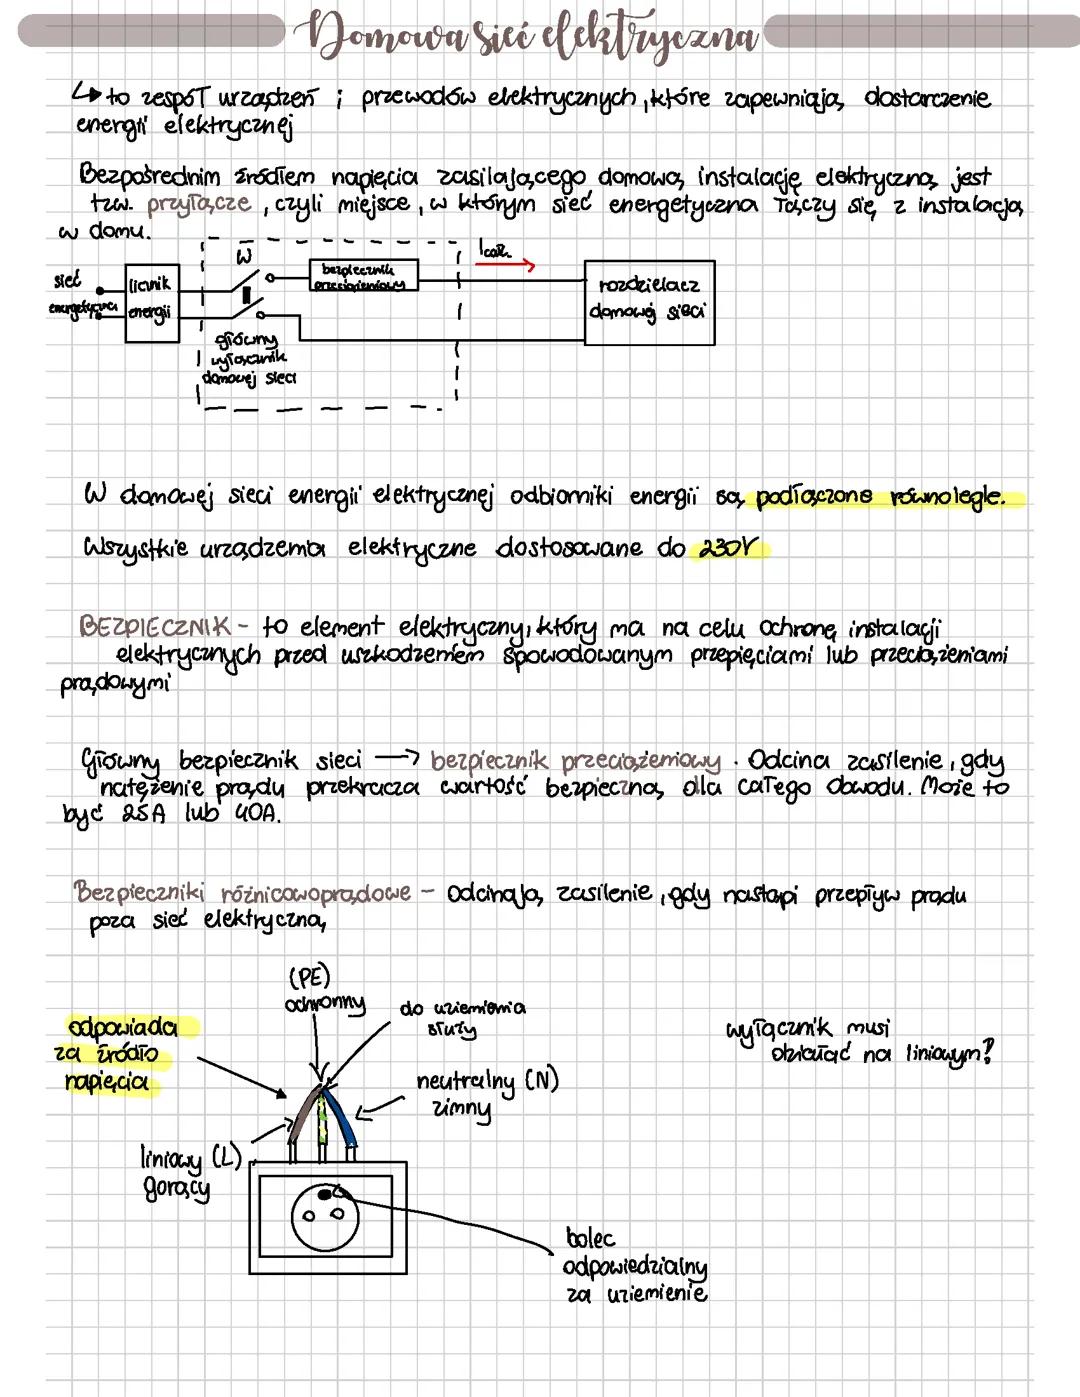 Domowa sieć elektryczna
↳ to zespół urządzeń i przewodów elektrycznych, które zapewniają dostarczenie
energii elektrycznej
Bezpośrednim źródłem napięcia zasilającego domową instalację elektryczną jest
tzw. przyłącze, czyli miejsce, w którym sieć energetyczna łączy się z instalacją
w domu.
sieć
energetyczna
licznik
energii
W
bezpiecznik
przeciążeniowy
I całk.
rozdzielacz
domowej sieci
główny
wyłącznik
domowej sieci
W domowej sieci energii elektrycznej odbiorniki energii są podłączone równolegle.
Wszystkie urządzenia elektryczne dostosowane do 230V
BEZPIECZNIK - to element elektryczny, który ma na celu ochronę instalacji
elektrycznych przed uszkodzeniem spowodowanym przepięciami lub przeciążeniami
prądowymi
Główny bezpiecznik sieci → bezpiecznik przeciążeniowy. Odcina zasilenie, gdy
natężenie prądu przekracza wartość bezpieczną dla całego obwodu. Może to
być 25A lub 40A.
Bezpieczniki różnicowoprądowe - odcinają zasilenie, gdy nastąpi przepływ prądu
poza sieć elektryczną
(PE)
ochronny
do uziemienia
służy
odpowiada
za źródło
napięcia
wyłącznik musi
działać na liniowym?
neutralny (N)
zimny
liniowy (L)
gorący
bolec
odpowiedzialny
za uziemienie